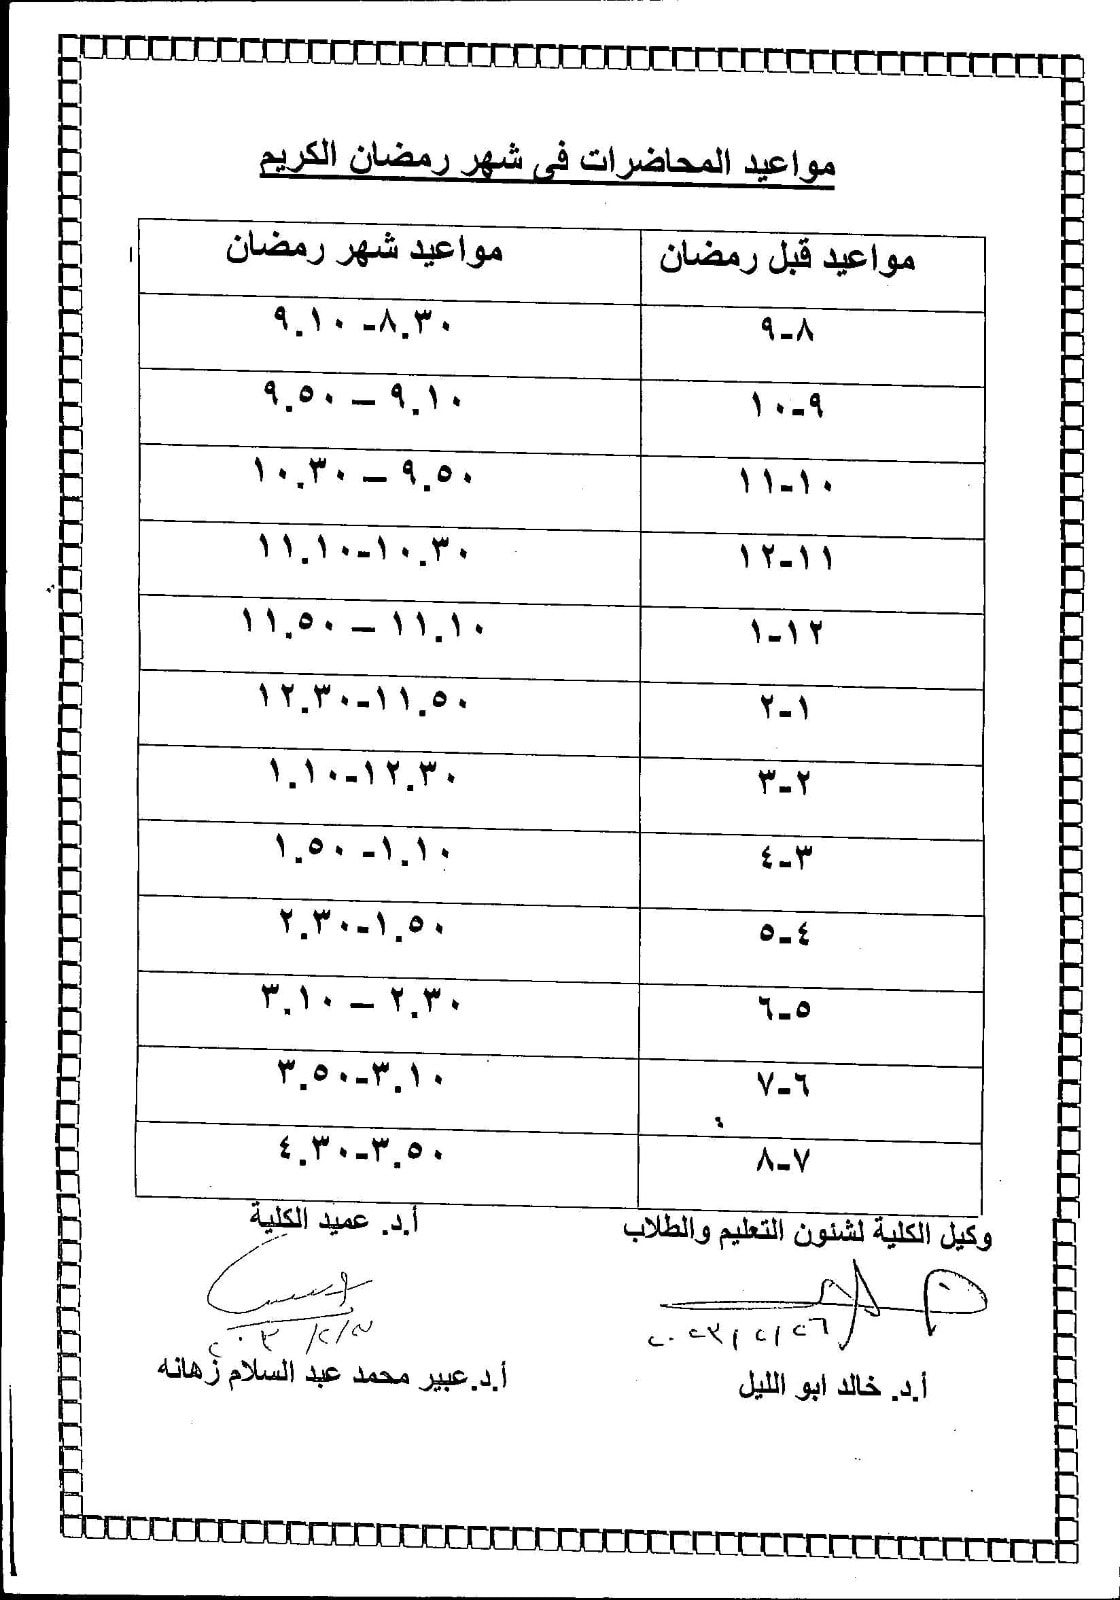 مواعيد المحاضرات فى شهر رمضان الكريم
مواعيد قبل رمضان مواعيد شهر رمضان
٨-٩ ٨.٣٠- ٩.١٠
٩-١٠ ٩.١٠ – ٩.٥٠
١٠-١١ ٩.٥٠ – ١٠.٣٠
١١-١٢ ١٠.٣٠-١١.١٠
١٢-١ ١١.١٠ – ١١.٥٠
١-٢ ١١.٥٠-١٢.٣٠
٢-٣ ١٢.٣٠-١.١٠
٣-٤ ١.١٠- ١.٥٠
٤-٥ ١.٥٠-٢.٣٠
٥-٦ ٢.٣٠ – ٣.١٠
٦-٧ ٣.١٠-٣.٥٠
٧-٨ ٣.٥٠-٤.٣٠
وكيل الكلية لشئون التعليم والطلاب أ.د. عميد الكلية
أ.د. خالد ابو الليل أ.د.عبير محمد عبد السلام زهانه